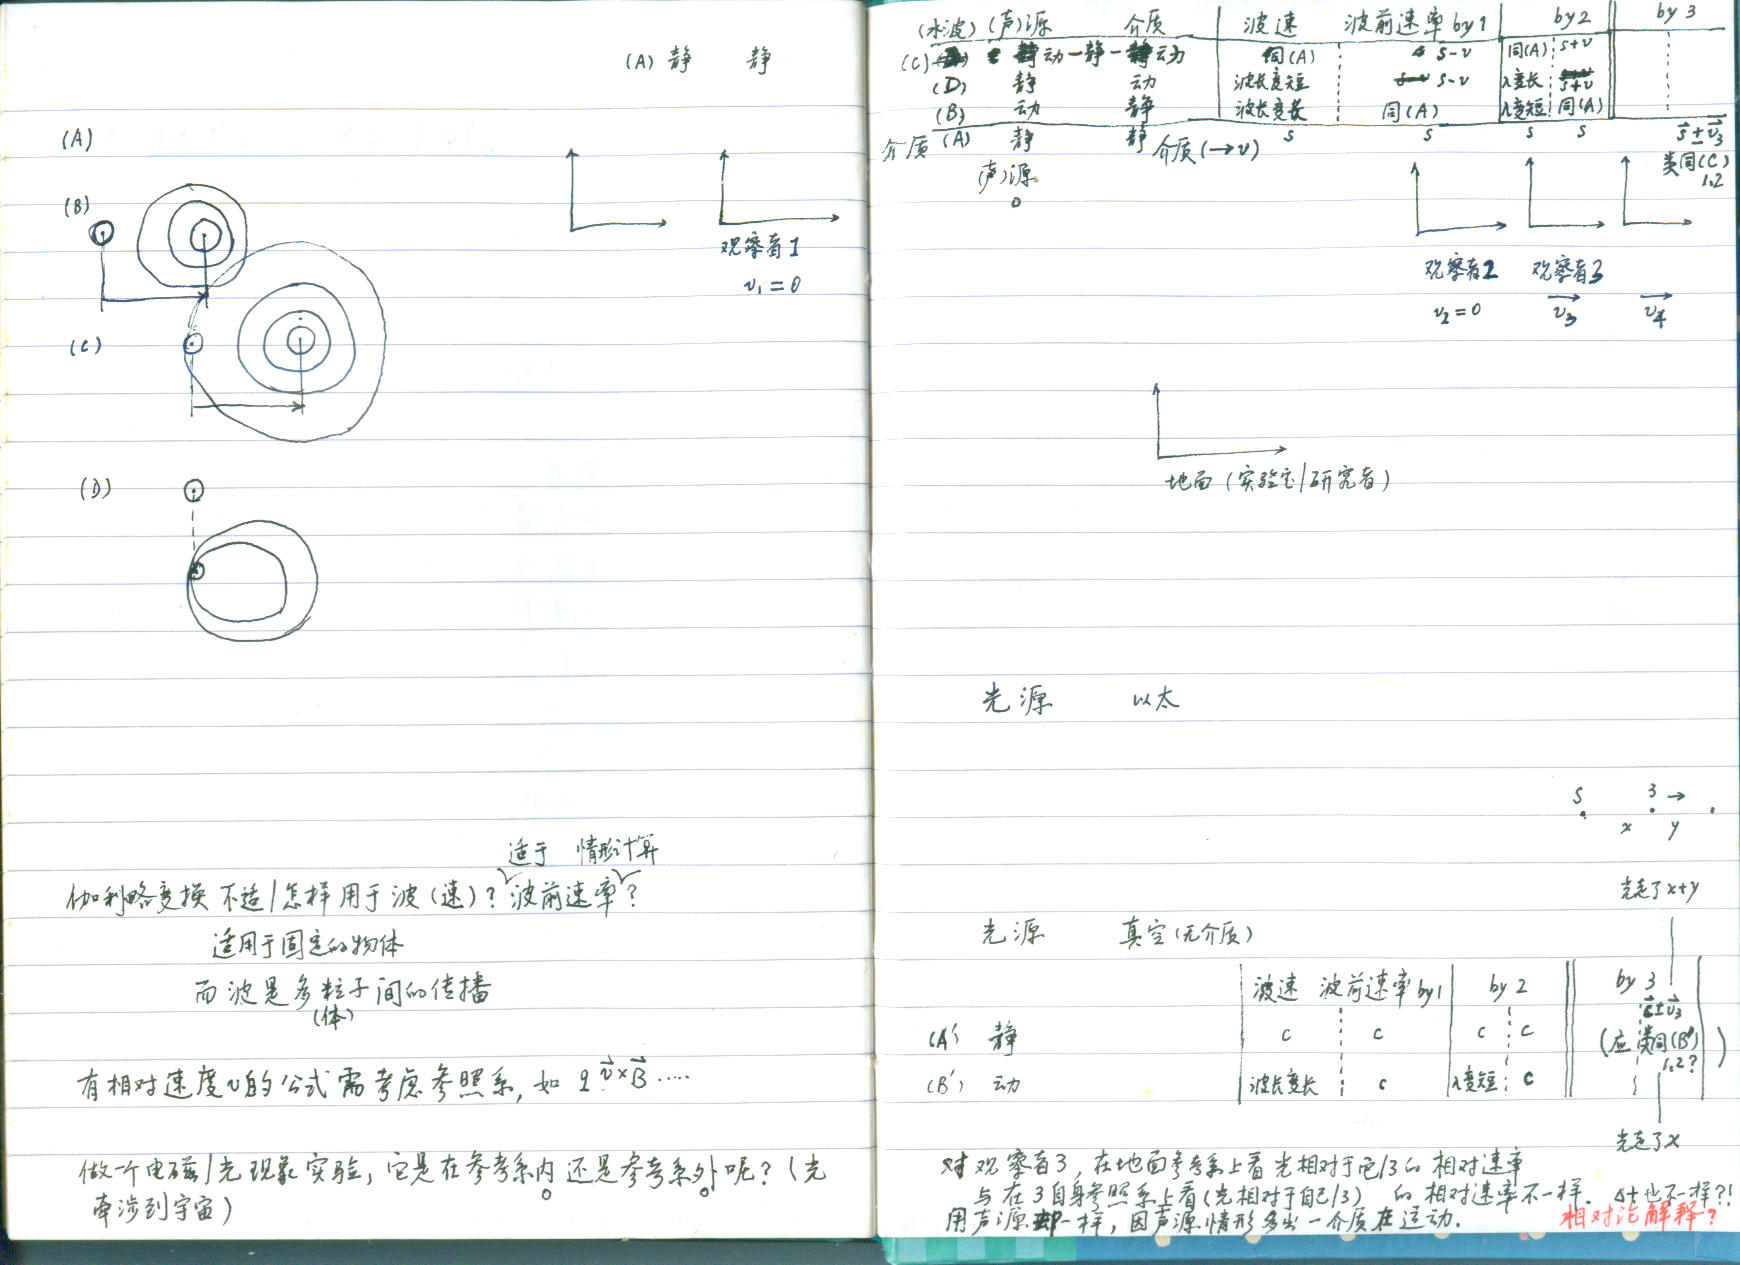 (A) 静 静
(A)
(B)
观察者1
v₁=0
(C)
(D)
适于 情形计算
伽利略变换 不适/怎样用于波(速)? 波前速率?
适用于固定的物体
而波是多粒子间的传播
(体)
有相对速度v的公式需考虑参照系, 如 q v⃗×B⃗ ·····
做一个电磁/光现象实验, 它是在参考系内还是参考系外呢? (光
牵涉到宇宙)
(水波) (声)源 介质 波速 波前速率 by1 by2 by 3
(C) 动-静-动 同(A) s-v 同(A) s+v
(D) 静 动 波长变短 s-v λ变长 s+v
(B) 动 静 波长变长 同(A) λ变短 同(A)
介质 (A) 静 静 s s s s s⃗±v⃗₃
介质(→v) 类同(C)
1,2
(声)源
观察者2 观察者3
v₂=0 v⃗₃ v⃗₄
地面 (实验室/研究者)
光源 以太
S 3 →
x y
光走了x+y
光源 真空(无介质)
波速 波前速率 by1 by 2 by 3
c⃗±v⃗₃
(A') 静 c c c c (应类同(B')
1,2?)
(B') 动 波长变长 c λ变短 c
光走了x
对观察者3, 在地面参考系上看光相对于它/3的相对速率
与在3自身参照系上看(光相对于自己/3) 的相对速率不一样. Δt也不一样?!
用声源却一样, 因声源情形多出一介质在运动.
相对论解释?